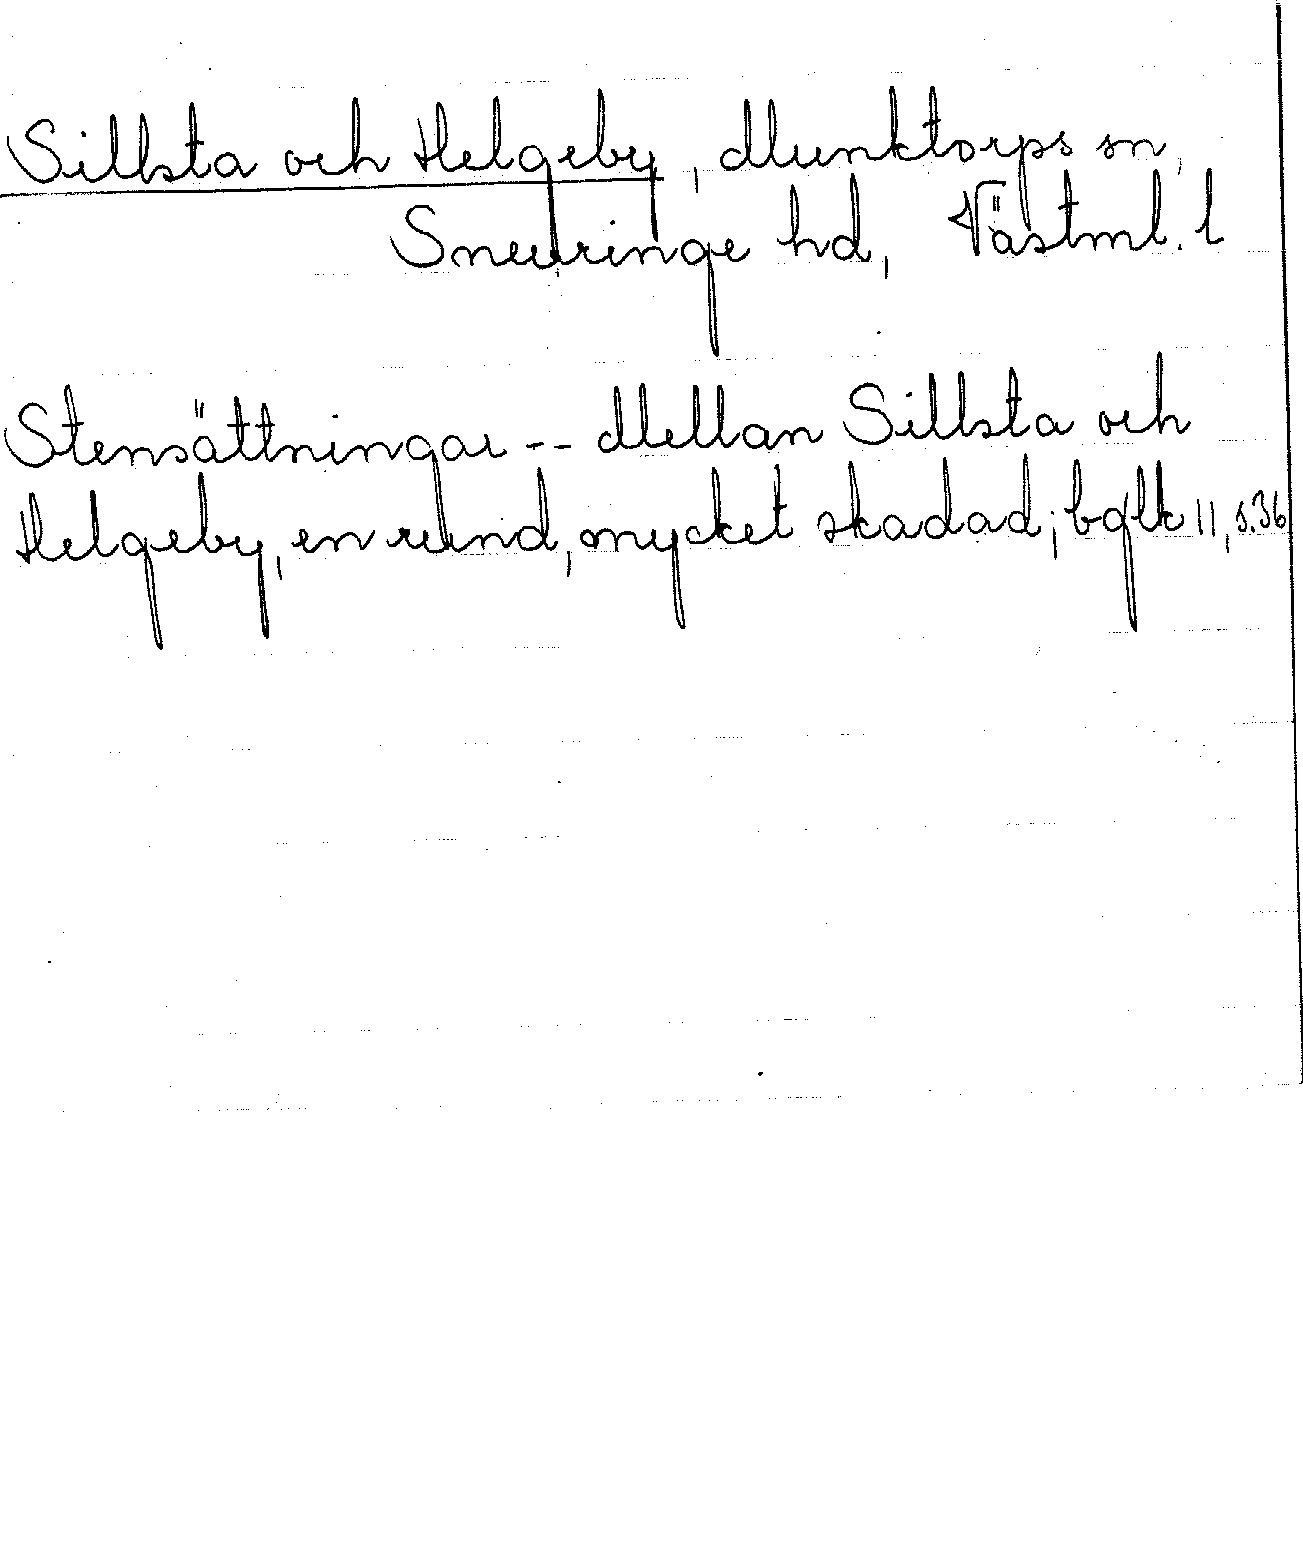 Sillsta och Helgeby, Munktorps sn,
Snevringe hd, Västml. l
Stensättningar -- Mellan Sillsta och
Helgeby, en rund, mycket skadad; bglk 11, s.36